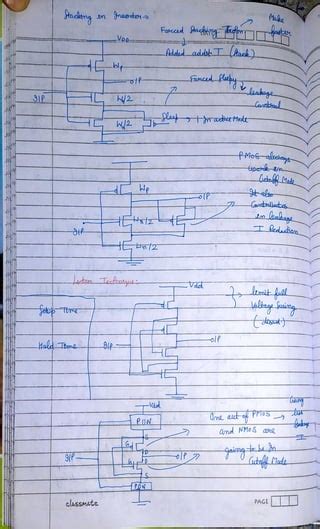 Stacking in Inverter:-
Forced Stacking Trans
Make
faster
VDD
Added addit T (Stack)
Wp
O/P
Forced Sleepy
leakage
Control
I/P
W/2
W/2
Sleep → 1 Inactive Mode
PMOS always
work in
Cutoff Mode
Wp
O/P
It also
Contributes
in leakage
I Reduction
Wn/2
I/P
Wn/2
Lector Technique:-
Vdd
Setup Time:-
limit full
Voltage Swing
Hold Time
I/P
O/P
Vdd
PUN
One out of PMOS → 
and NMOS are
less
leakage
I
S
D
O/P
going to be In
Cutoff Mode
I/P
D
S
PDN
classmate
PAGE